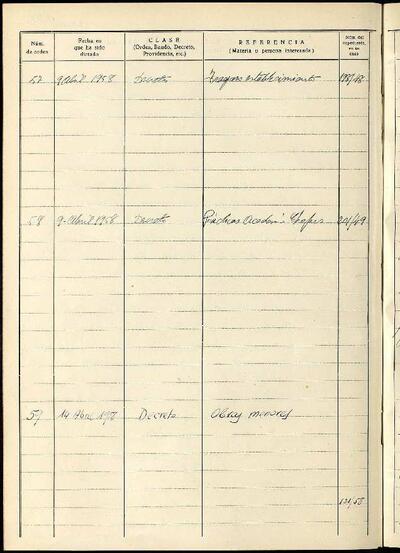 Núm. de orden
Fecha en que ha sido dictada
CLASE
(Orden, Bando, Decreto, Providencia, etc.)
REFERENCIA
(Materia o persona interesada)
Núm. del expediente, en su caso
57 9 Abril 1958 Decreto establecimiento
58 9-Abril 1958 Decreto Prácticas Academia 201/49
59 14 Abril Decreto Obras menores
121/58